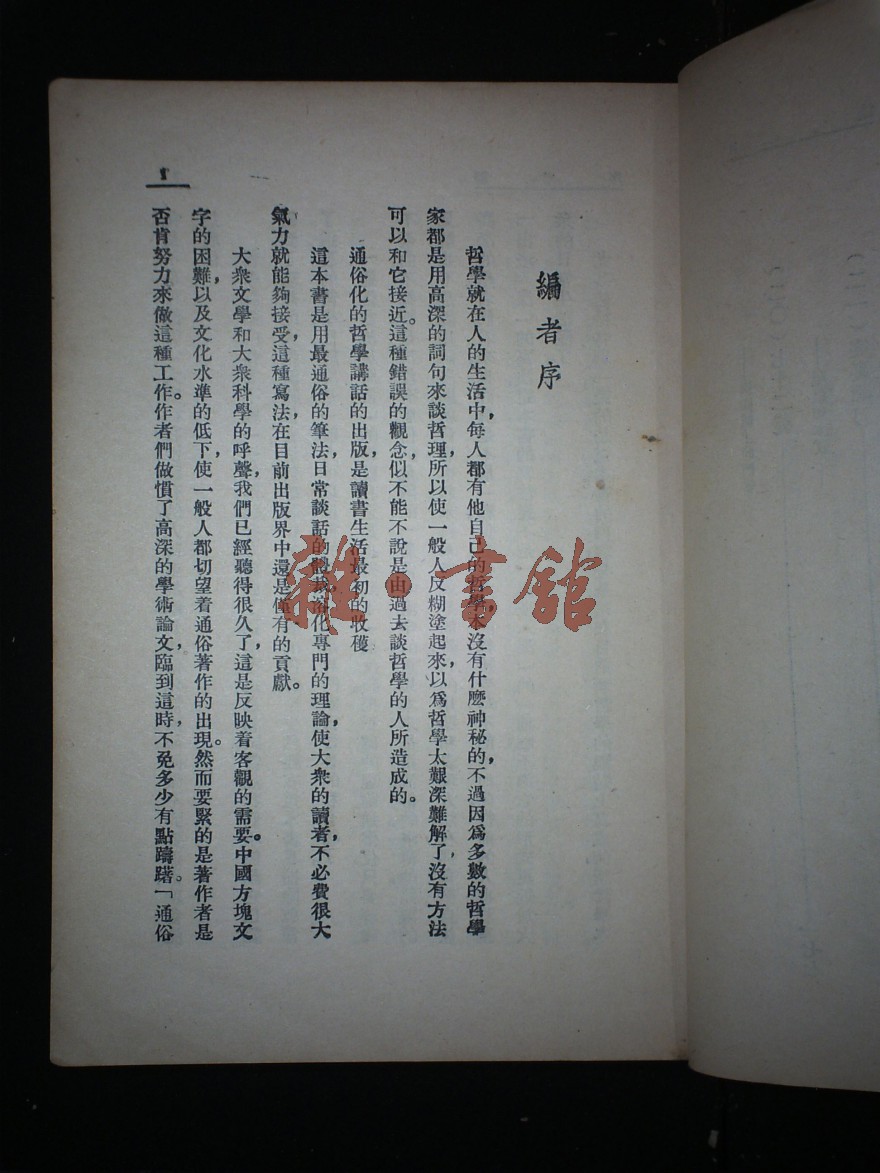 編者序
哲學就在人的生活中，每人都有他自己的哲學，本沒有什麽神秘的，不過因爲多數的哲學
家都是用高深的詞句來談哲理，所以使一般人反糊塗起來，以爲哲學太艱深難解了，沒有方法
可以和它接近。這種錯誤的觀念，似不能不說是由過去談哲學的人所造成的。
通俗化的哲學講話的出版，是讀書生活最初的收穫
這本書是用最通俗的筆法，日常談話的體裁，溶化專門的理論，使大衆的讀者，不必費很大
氣力就能夠接受，這種寫法，在目前出版界中還是僅有的貢獻。
大衆文學和大衆科學的呼聲，我們已經聽得很久了，這是反映着客觀的需要。中國方塊文
字的困難，以及文化水準的低下，使一般人都切望着通俗著作的出現。然而要緊的是著作者是
否肯努力來做這種工作。作者們做慣了高深的學術論文，臨到這時，不免多少有點躊躇。「通俗
1
雜·書舘